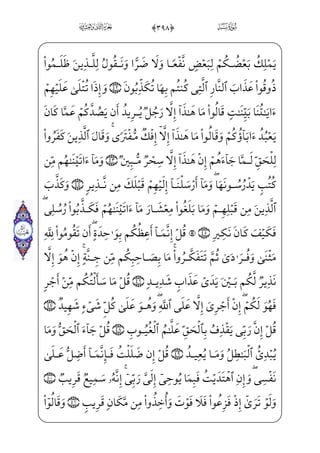 سُورَةُ سَبَإٍ ﴿٣٩٨﴾
يَمْلِكُ بَعْضُكُمْ لِبَعْضٍ نَّفْعًا وَلَا ضَرًّا وَنَقُولُ لِلَّذِينَ ظَلَمُواْ
ذُوقُواْ عَذَابَ ٱلنَّارِ ٱلَّتِى كُنتُم بِهَا تُكَذِّبُونَ ٤٢ وَإِذَا تُتْلَىٰ عَلَيْهِمْ
ءَايَـٰتُنَا بَيِّنَـٰتٍ قَالُواْ مَا هَـٰذَآ إِلَّا رَجُلٌ يُرِيدُ أَن يَصُدَّكُمْ عَمَّا كَانَ
يَعْبُدُ ءَابَآؤُكُمْ وَقَالُواْ مَا هَـٰذَآ إِلَّآ إِفْكٌ مُّفْتَرًى ۚ وَقَالَ ٱلَّذِينَ كَفَرُواْ
لِلْحَقِّ لَمَّا جَآءَهُمْ إِنْ هَـٰذَآ إِلَّا سِحْرٌ مُّبِينٌ ٤٣ وَمَآ ءَاتَيْنَـٰهُم مِّن
كُتُبٍ يَدْرُسُونَهَا ۖ وَمَآ أَرْسَلْنَآ إِلَيْهِمْ قَبْلَكَ مِن نَّذِيرٍ ٤٤ وَكَذَّبَ
ٱلَّذِينَ مِن قَبْلِهِمْ وَمَا بَلَغُواْ مِعْشَارَ مَآ ءَاتَيْنَـٰهُمْ فَكَذَّبُواْ رُسُلِى ۖ
فَكَيْفَ كَانَ نَكِيرِ ٤٥ ۞ قُلْ إِنَّمَآ أَعِظُكُم بِوَٰحِدَةٍ ۖ أَن تَقُومُواْ لِلَّهِ
مَثْنَىٰ وَفُرَٰدَىٰ ثُمَّ تَتَفَكَّرُواْ ۚ مَا بِصَاحِبِكُم مِّن جِنَّةٍ ۚ إِنْ هُوَ إِلَّا
نَذِيرٌ لَّكُم بَيْنَ يَدَىْ عَذَابٍ شَدِيدٍ ٤٦ قُلْ مَا سَأَلْتُكُم مِّنْ أَجْرٍ
فَهُوَ لَكُمْ ۖ إِنْ أَجْرِىَ إِلَّا عَلَى ٱللَّهِ ۖ وَهُوَ عَلَىٰ كُلِّ شَىْءٍ شَهِيدٌ ٤٧
قُلْ إِنَّ رَبِّى يَقْذِفُ بِٱلْحَقِّ عَلَّـٰمُ ٱلْغُيُوبِ ٤٨ قُلْ جَآءَ ٱلْحَقُّ وَمَا
يُبْدِئُ ٱلْبَـٰطِلُ وَمَا يُعِيدُ ٤٩ قُلْ إِن ضَلَلْتُ فَإِنَّمَآ أَضِلُّ عَلَىٰ
نَفْسِى ۖ وَإِنِ ٱهْتَدَيْتُ فَبِمَا يُوحِىٓ إِلَىَّ رَبِّىٓ ۚ إِنَّهُۥ سَمِيعٌ قَرِيبٌ ٥٠
وَلَوْ تَرَىٰٓ إِذْ فَزِعُواْ فَلَا فَوْتَ وَأُخِذُواْ مِن مَّكَانٍ قَرِيبٍ ٥١ وَقَالُوٓاْ